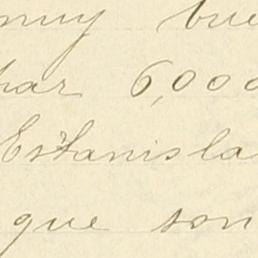 muy bue
har 6,000
Estanisla
que son